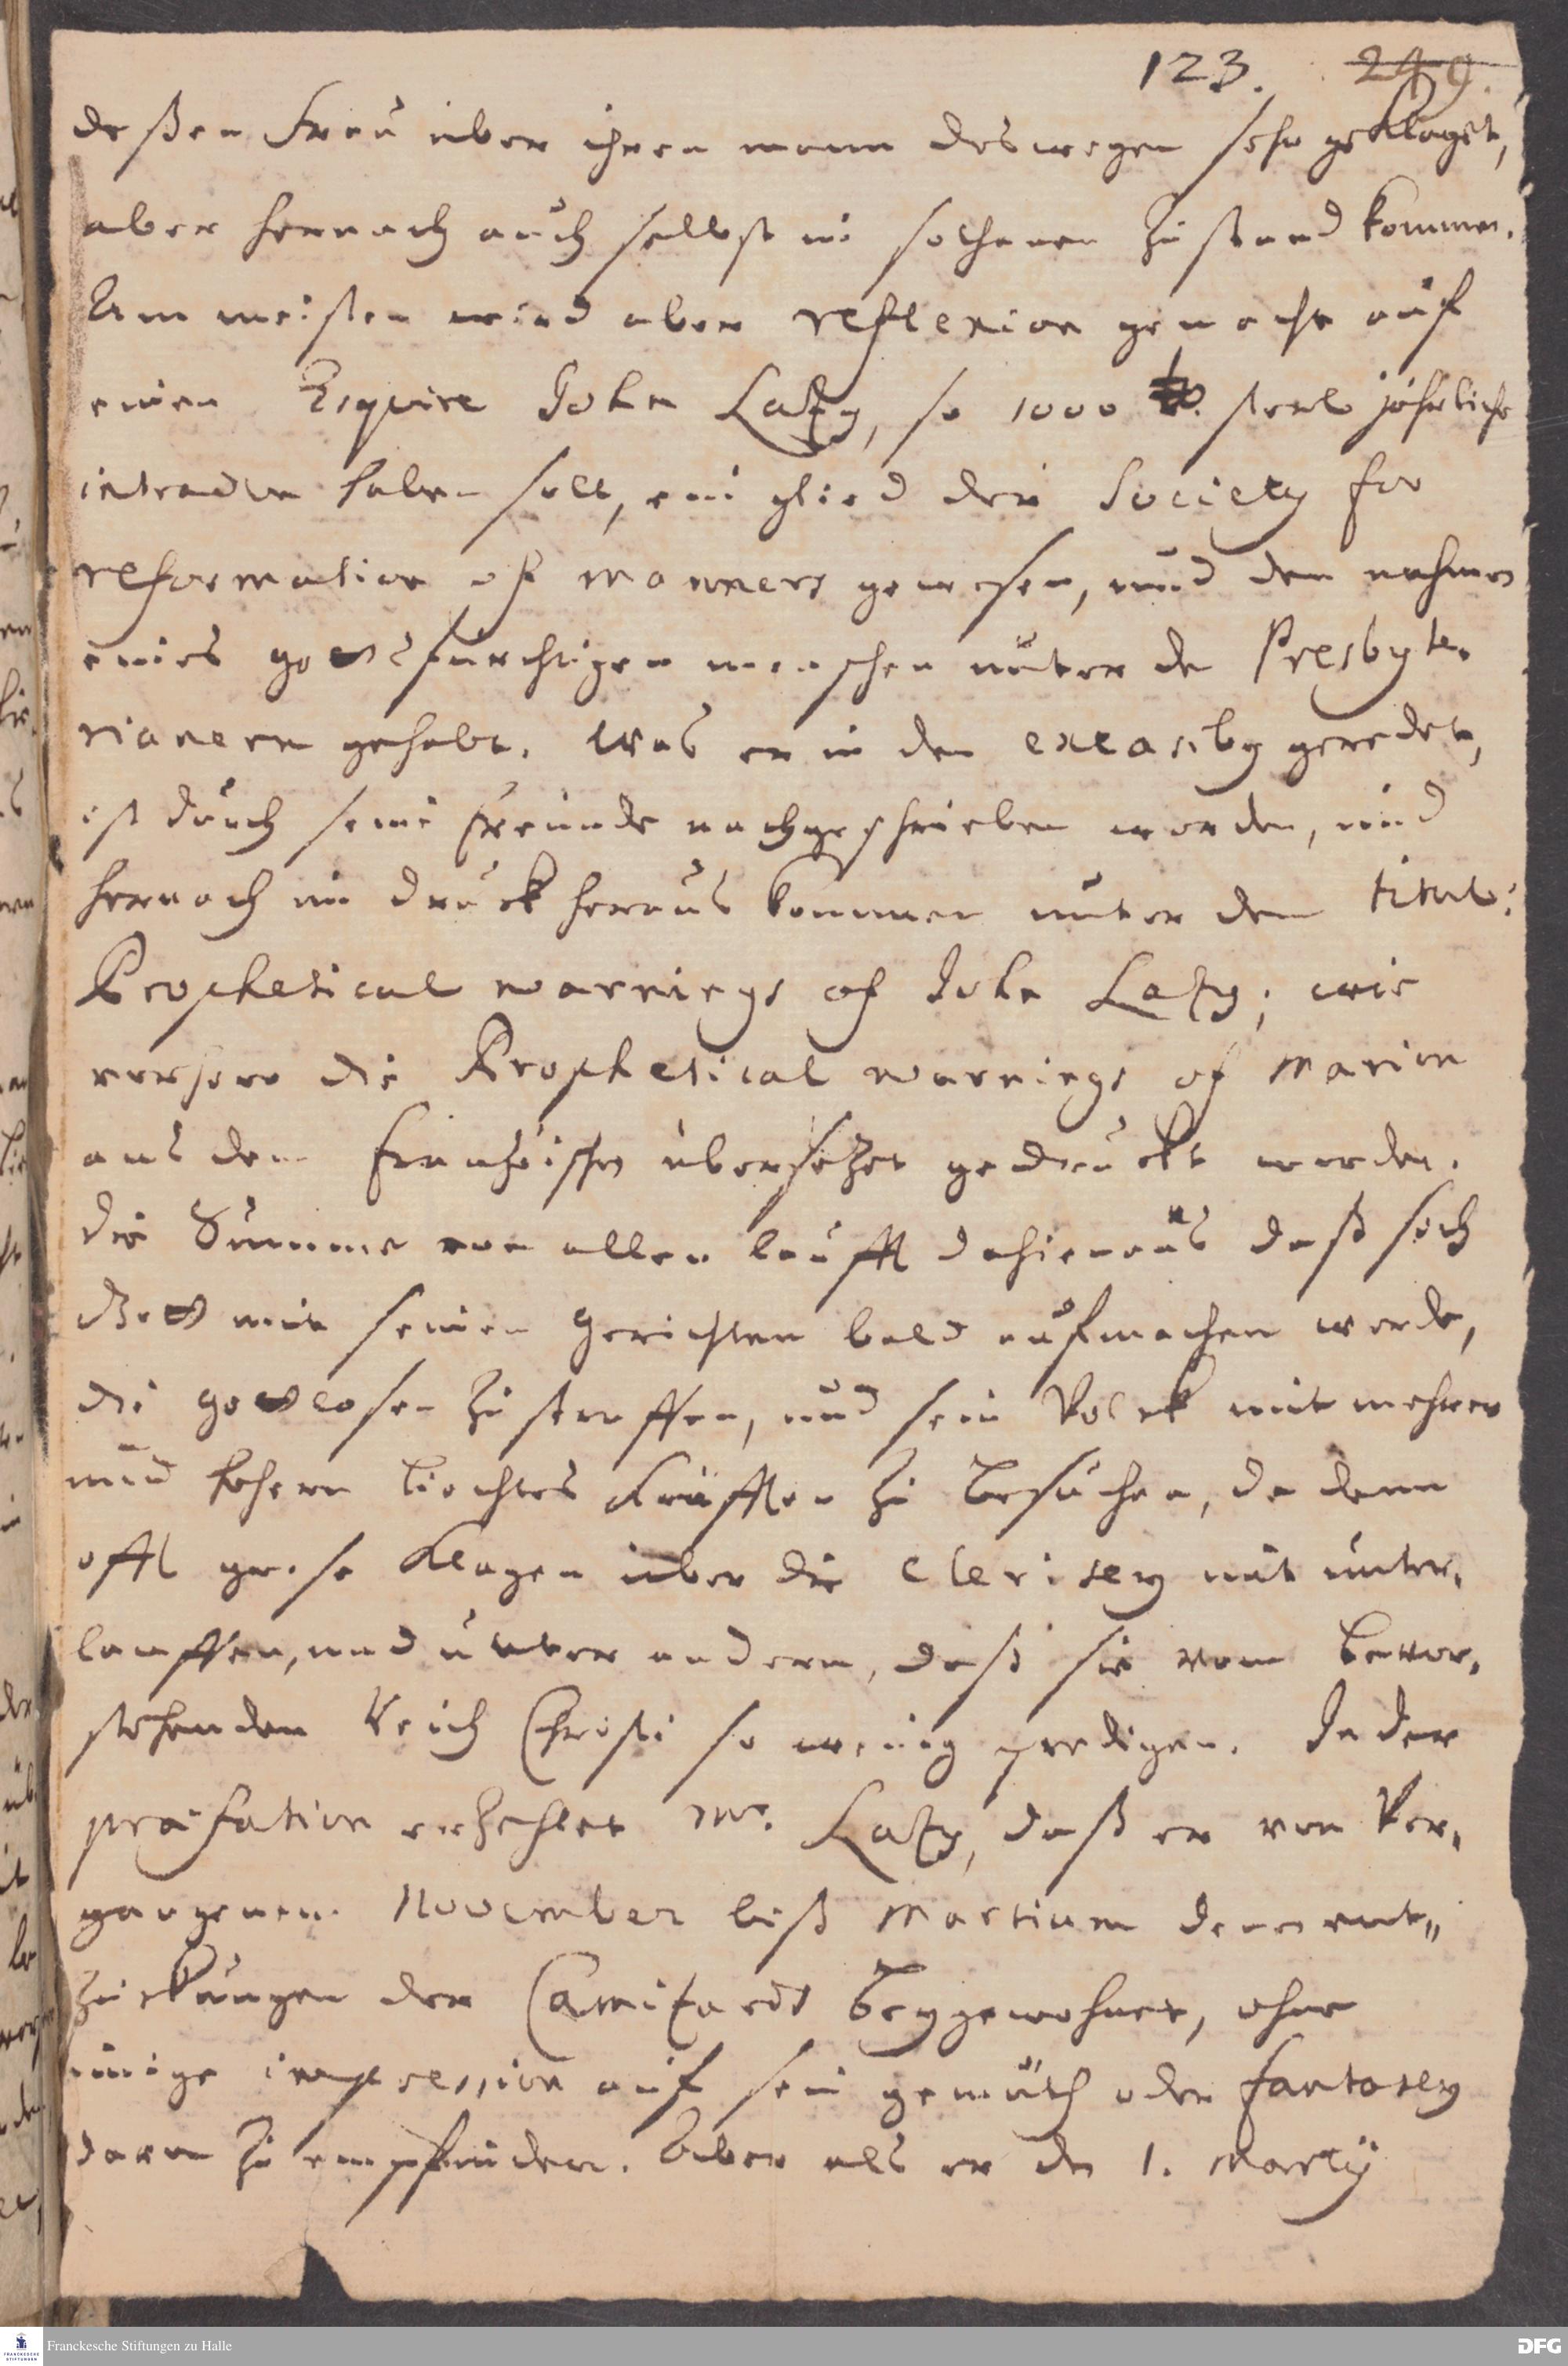 123. 249.
deßen Frau über ihren mann deswegen sehr geklaget,
aber hernach auch selbst in solchenen zustand kommen.
Am meisten wird aber reflexion gemacht auf
einen Esqvire John Lacy, so 1000 lb. sterl jährliche
intraden haben soll, ein glied der Society for
reformation of manners gewesen, und den nahmen
eines gottsfürchtigen menschen unter den Presbyte-
rianern gehabt. Was er in den exeastby geredet,
ist durch seine Freunde nachgeschrieben worden, und
hernach im druck heraus kommen unter dem titul:
Prophetical warnings of John Lacy; wie
vorhero die Prophetical warnings of Marion
aus dem frantzöischen übersetzet gedruckt worden.
die Summe von allen laufft dahienaus daß sich
Gott mit seinen Gerichten bald aufmachen werde,
die gottlosen zu straffen, und sein Volck mit mehrer
und höhern Liechtes Kräfften zu besuchen, da denn
offt grose klagen über die Clerisey mit unter-
lauffen, und unter andern, daß sie vom bevor-
stehenden Reich Christi so wenig predigen. In der
præfation erzehlet Mr. Lacy, daß er von Ver-
gangenen November biß Martium denen ent-
zückungen der Camisards beygewohnet, ohne
einige impression auf sein gemüth oder fantasey
davon zu empfinden. Aber als er den 1. Martij
Franckesche Stiftungen zu Halle
DFG